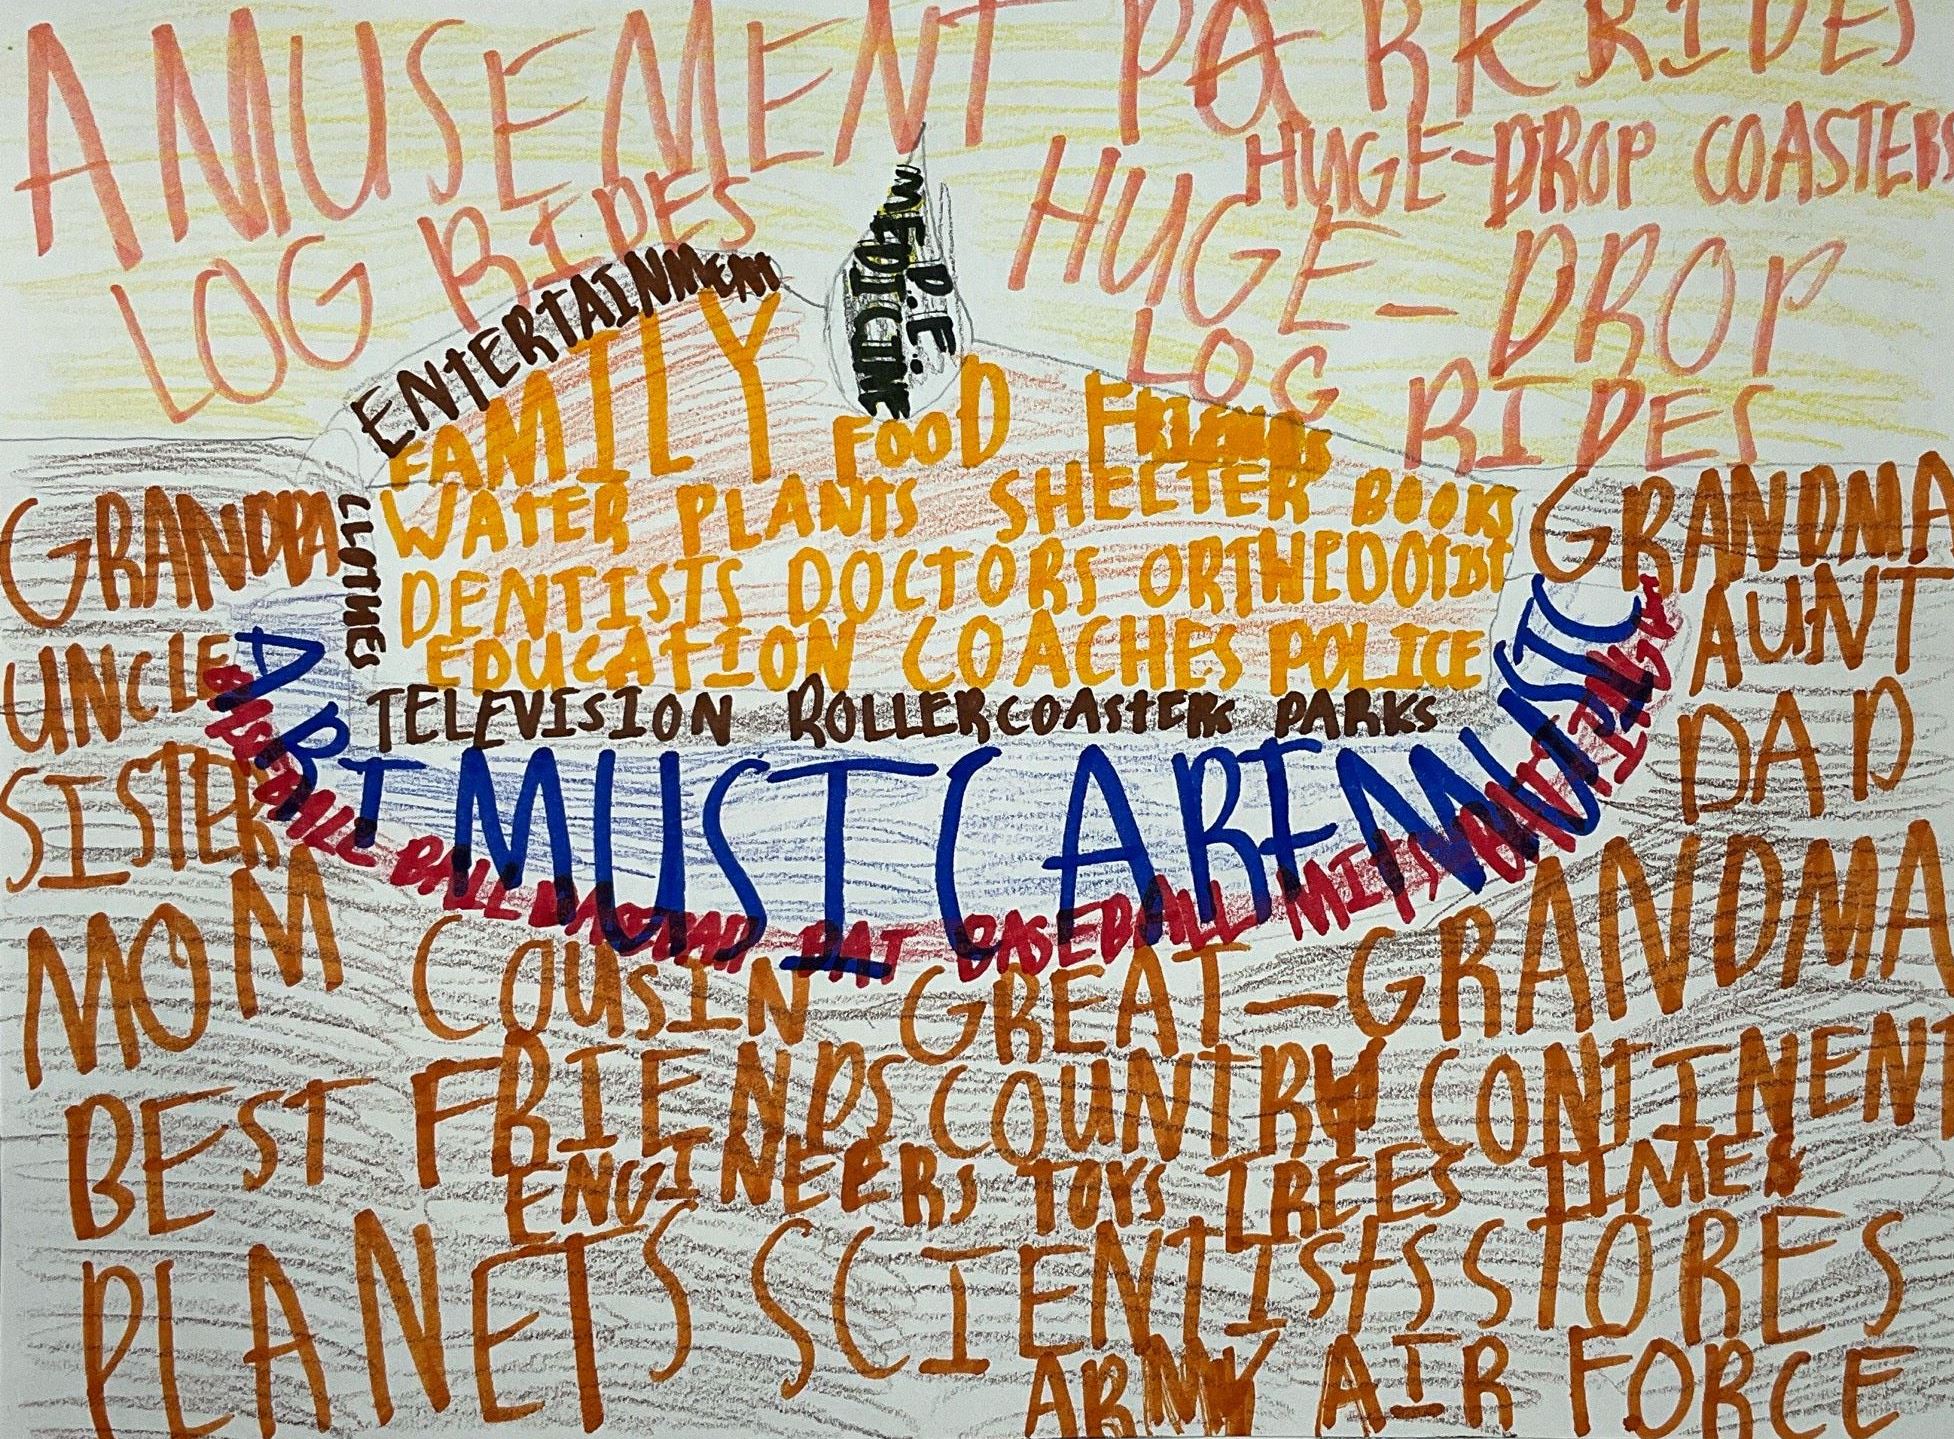 AMUSEMENT PARK RIDES
HUGE-DROP COASTERS
LOG RIDES
HUGE-DROP
LOG RIDES
MEDICINE
P.E.
ENTERTAINMENT
FAMILY FOOD FRIENDS
WATER PLANTS SHELTER BOOKS
DENTISTS DOCTORS
EDUCATION COACHES POLICE
CLOTHES
TELEVISION ROLLERCOASTERS PARKS
ART MUSIC ART MUSIC
BASEBALL BALL BAT BASEBALL MITS
GRANDPA
UNCLE
SISTER
GRANDMA
AUNT
DAD
MOM COUSIN GREAT-GRANDMA
BEST FRIENDS COUNTRY CONTINENT
ENGINEERS TOYS TREES TIMES
PLANETS SCIENTISTS STORES
ARMY AIR FORCE